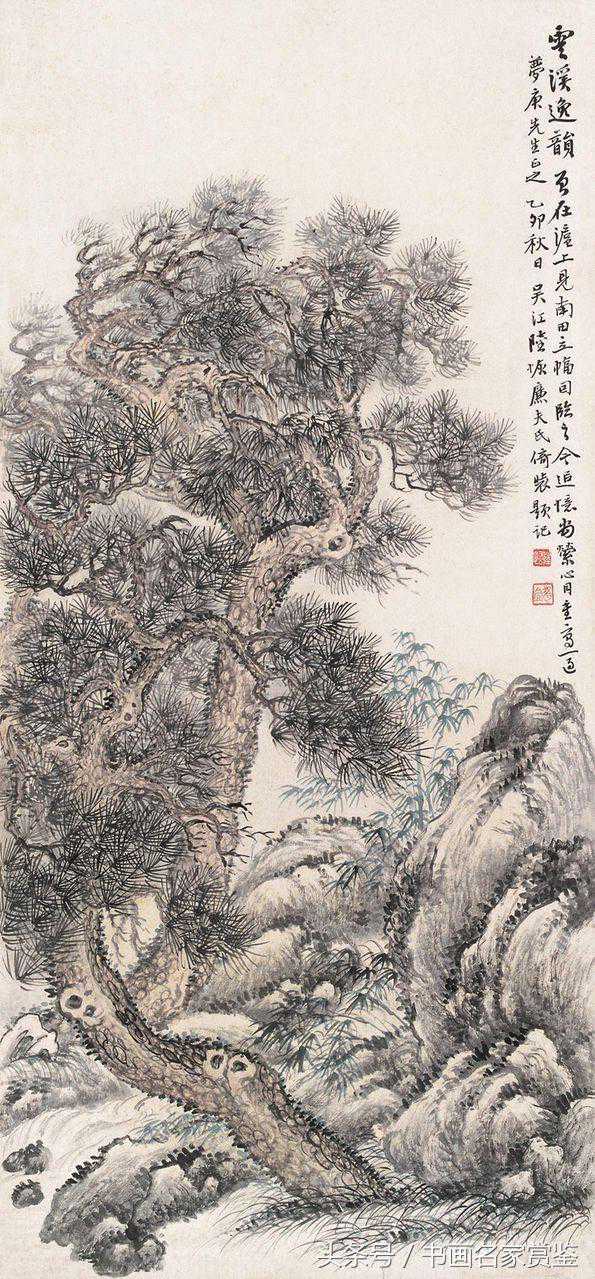 雲溪逸韻 曾在滬上見南田立幅因臨之今追憶尚縈心目重寫一過
夢庚先生正之 乙卯秋日 吳江陸恢廉夫氏倚裝題記
头条号 / 书画名家赏鉴